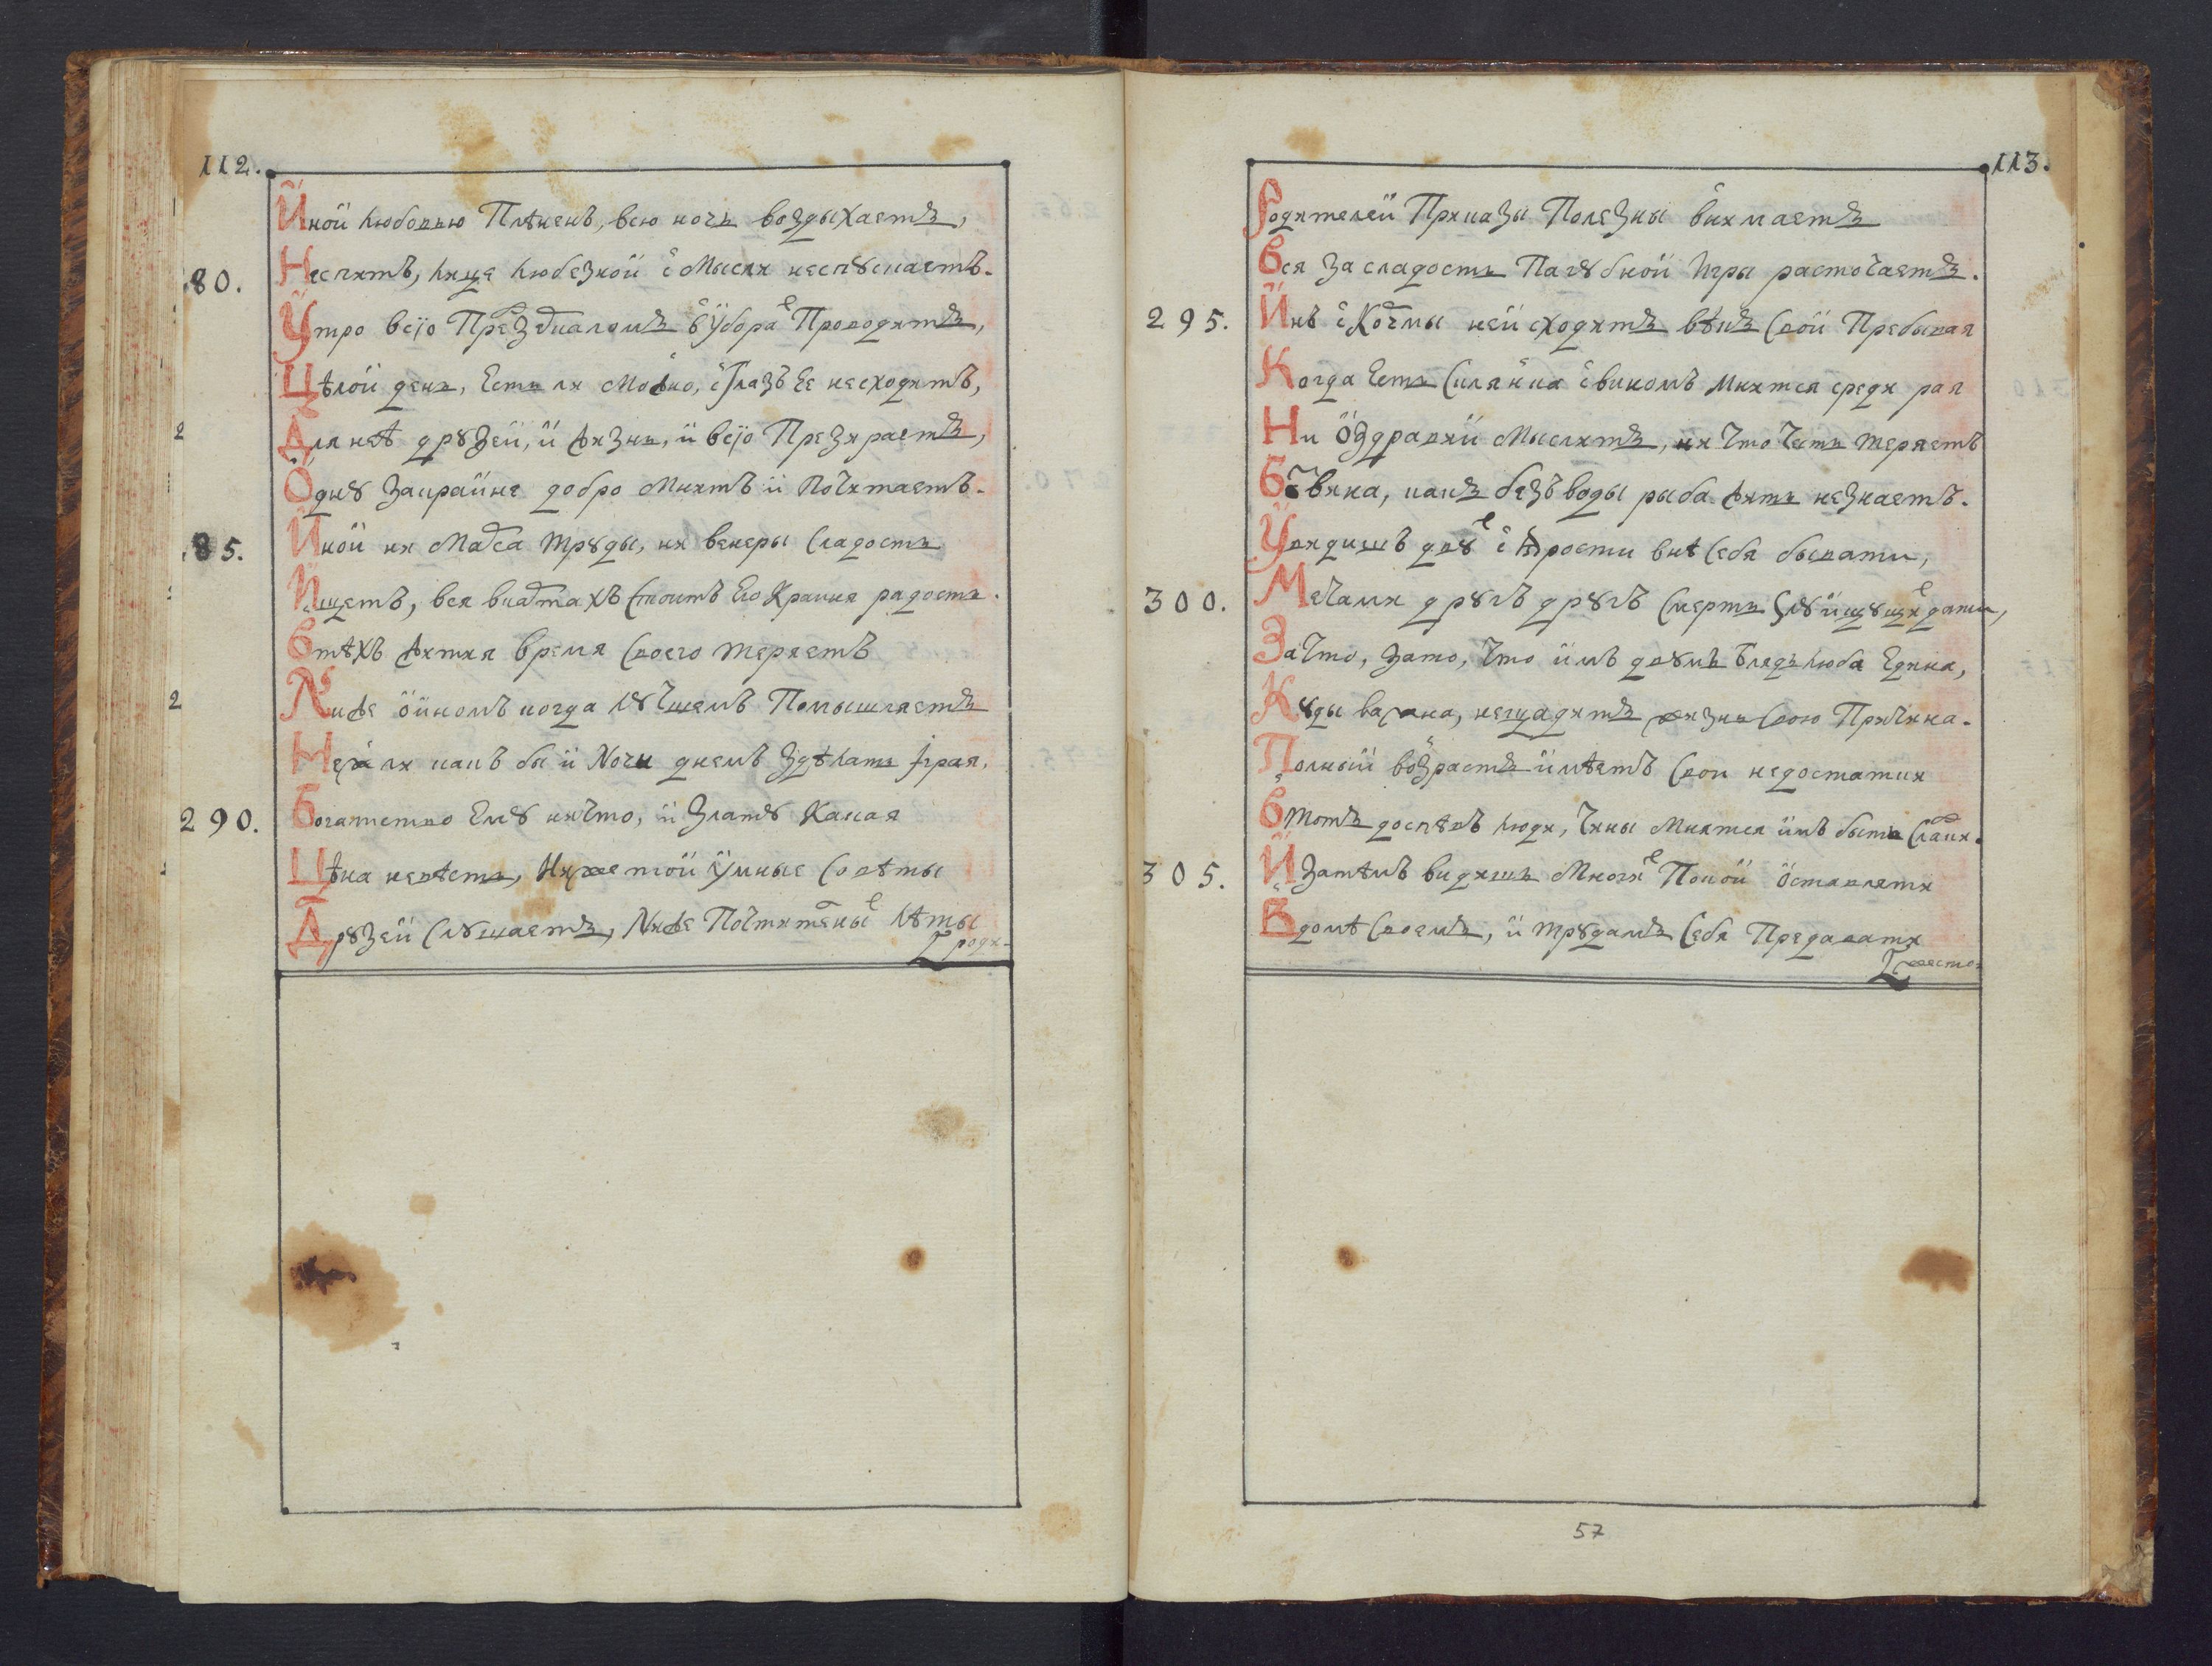 112.
Иной любовью Плѣненъ, всю ночь воздыхаетъ,
80. Неспитъ, лице любезной с Мысли неспꙋскаетъ.
Утро всіо Презеркаломъ вУбора Проводитъ,
Цѣлой день, Есть ли Можно, сГлазъ Ее несходитъ,
Для неѣ дрꙋзей, и жизнь, и всіо Презираетъ,
Однꙋ Заирайне добро Мнитъ и Почитаетъ.
85. Иной ни Марса трꙋды, ни венеры Сладость
Ищетъ, вся вкартахъ Стоитъ Его Крайня радость.
Втѣхъ житія время Своего теряетъ
Ниже оИномъ когда лꙋчшемъ Помышляетъ
Нежели какъ бы и Ночи днемъ Здѣлать Іграя.
290. Богатство Емꙋ ничто, и Златꙋ Какая
Цѣна невѣсть, Ниже той Умные Совѣты
Дрꙋзей Слꙋшаетъ, Ниже Почтителены лѣты
роди-
113.
Родителей Приказы Полезны внимаетъ
Вся За сладость Пагꙋбной Игры расточаетъ.
295. Инъ с Корчмы ней сходитъ вѣкъ Свой Пребывая
Когда Есть Силянка с виномъ Мнится среди рая
Ни оЗдравии Мыслитъ, ни что Честь теряетъ
Безвина, какъ безъ воды рыба жить незнаетъ.
Увидишъ двꙋ с Ярости внѣ Себя бывати,
300. Мечами дрꙋгъ дрꙋгꙋ Смерть Злꙋ ищꙋщи дати,
Зачто, Зато, что имъ двꙋмъ блядь люба Едина,
Кꙋды важна, нещадитъ жизнь Свою Причина.
Полный возрастъ имѣетъ Свои недостатки
Втотъ доспѣвъ люди, Чины Мнятся имъ быть Сладки.
305. И Затѣмъ видишъ Многи Покой оставляти
Вдомѣ Своемъ, и трꙋдамъ Себя Предавати
жесто-
57